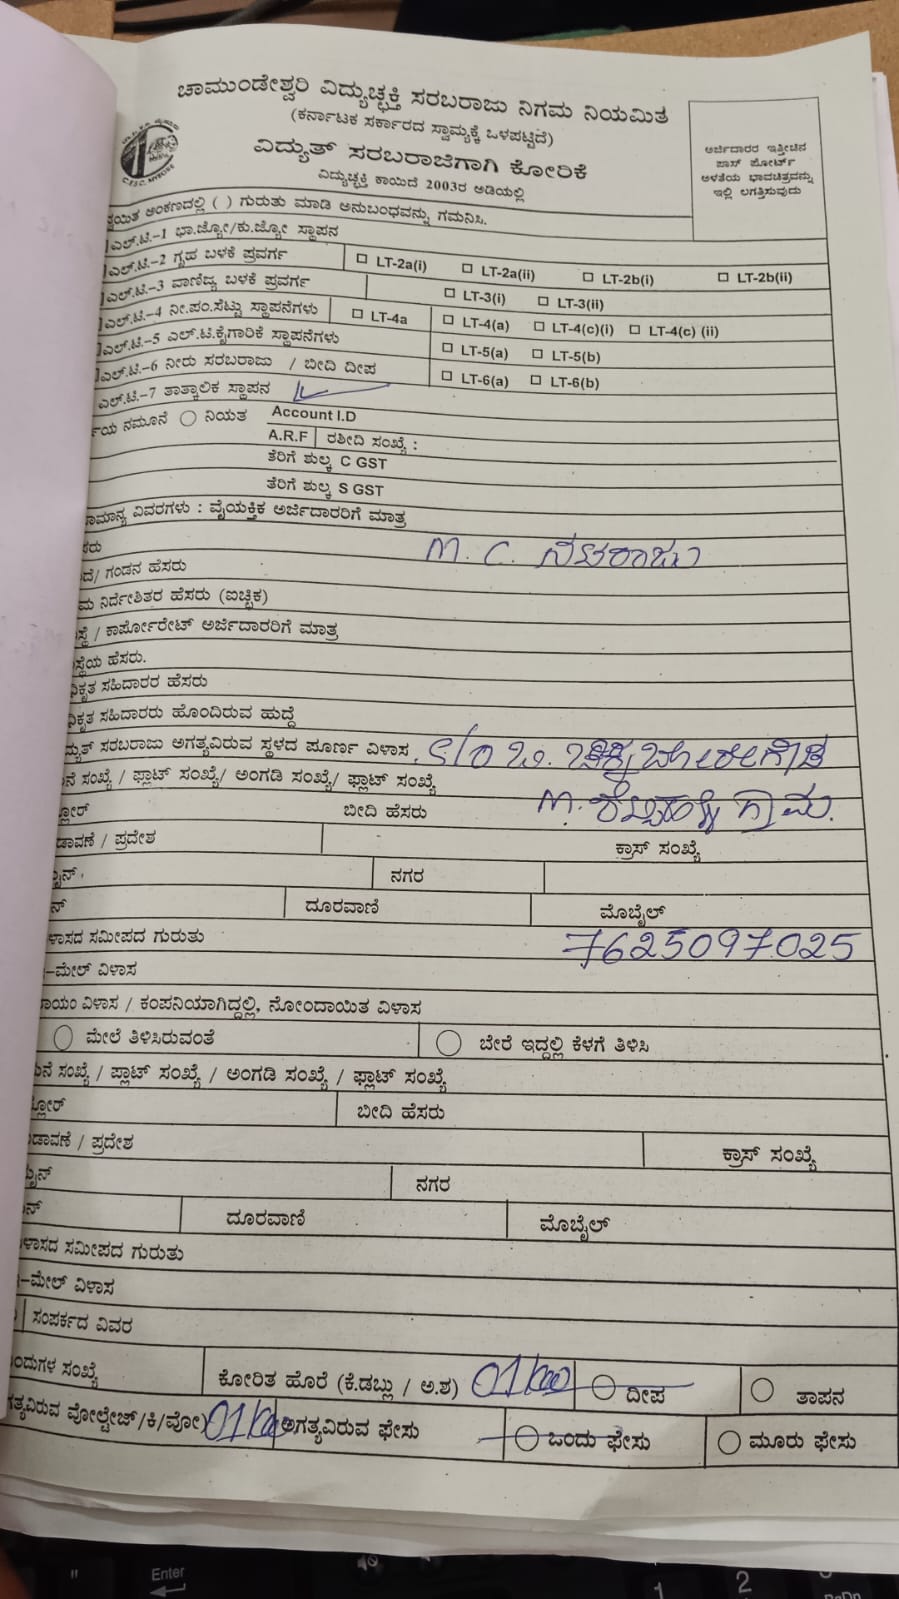 ಚಾಮುಂಡೇಶ್ವರಿ ವಿದ್ಯುಚ್ಛಕ್ತಿ ಸರಬರಾಜು ನಿಗಮ ನಿಯಮಿತ
(ಕರ್ನಾಟಕ ಸರ್ಕಾರದ ಸ್ವಾಮ್ಯಕ್ಕೆ ಒಳಪಟ್ಟಿದೆ)
ವಿದ್ಯುತ್ ಸರಬರಾಜಿಗಾಗಿ ಕೋರಿಕೆ
ವಿದ್ಯುಚ್ಛಕ್ತಿ ಕಾಯಿದೆ 2003ರ ಅಡಿಯಲ್ಲಿ
ಅರ್ಜಿದಾರರ ಇತ್ತೀಚಿನ
ಪಾಸ್ ಪೋರ್ಟ್
ಅಳತೆಯ ಭಾವಚಿತ್ರವನ್ನು
ಇಲ್ಲಿ ಲಗತ್ತಿಸುವುದು
C.E.S.C. MYSORE
ಅಂಕಣದಲ್ಲಿ ( ) ಗುರುತು ಮಾಡಿ ಅನುಬಂಧವನ್ನು ಗಮನಿಸಿ.
ಎಲ್.ಟಿ.–1 ಭಾ.ಜ್ಯೋ/ಕು.ಜ್ಯೋ ಸ್ಥಾಪನ
ಎಲ್.ಟಿ.–2 ಗೃಹ ಬಳಕೆ ಪ್ರವರ್ಗ LT-2a(i) LT-2a(ii) LT-2b(i) LT-2b(ii)
ಎಲ್.ಟಿ.–3 ವಾಣಿಜ್ಯ ಬಳಕೆ ಪ್ರವರ್ಗ LT-3(i) LT-3(ii)
ಎಲ್.ಟಿ.–4 ನೀ.ಪಂ.ಸೆಟ್ಟು ಸ್ಥಾಪನೆಗಳು LT-4a LT-4(a) LT-4(c)(i) LT-4(c) (ii)
ಎಲ್.ಟಿ.–5 ಎಲ್.ಟಿ.ಕೈಗಾರಿಕೆ ಸ್ಥಾಪನೆಗಳು LT-5(a) LT-5(b)
ಎಲ್.ಟಿ.–6 ನೀರು ಸರಬರಾಜು / ಬೀದಿ ದೀಪ LT-6(a) LT-6(b)
ಎಲ್.ಟಿ.–7 ತಾತ್ಕಾಲಿಕ ಸ್ಥಾಪನ
ನಮೂನೆ ನಿಯತ Account I.D
A.R.F ರಶೀದಿ ಸಂಖ್ಯೆ :
ತೆರಿಗೆ ಶುಲ್ಕ C GST
ತೆರಿಗೆ ಶುಲ್ಕ S GST
ವಿವರಗಳು : ವೈಯಕ್ತಿಕ ಅರ್ಜಿದಾರರಿಗೆ ಮಾತ್ರ
M. C. ನಟರಾಜು
ಗಂಡನ ಹೆಸರು
ನಿರ್ದೇಶಿತರ ಹೆಸರು (ಐಚ್ಛಿಕ)
/ ಕಾರ್ಪೋರೇಟ್ ಅರ್ಜಿದಾರರಿಗೆ ಮಾತ್ರ
ಹೆಸರು.
ಸಹಿದಾರರ ಹೆಸರು
ಸಹಿದಾರರು ಹೊಂದಿರುವ ಹುದ್ದೆ
ಸರಬರಾಜು ಅಗತ್ಯವಿರುವ ಸ್ಥಳದ ಪೂರ್ಣ ವಿಳಾಸ S/O
ಸಂಖ್ಯೆ / ಫ್ಲಾಟ್ ಸಂಖ್ಯೆ/ ಅಂಗಡಿ ಸಂಖ್ಯೆ/ ಫ್ಲಾಟ್ ಸಂಖ್ಯೆ
ಬೀದಿ ಹೆಸರು M. ಗ್ರಾಮ.
/ ಪ್ರದೇಶ ಕ್ರಾಸ್ ಸಂಖ್ಯೆ
ನಗರ
ದೂರವಾಣಿ ಮೊಬೈಲ್
ಸಮೀಪದ ಗುರುತು 7625097025
–ಮೇಲ್ ವಿಳಾಸ
ವಿಳಾಸ / ಕಂಪನಿಯಾಗಿದ್ದಲ್ಲಿ, ನೋಂದಾಯಿತ ವಿಳಾಸ
ಮೇಲೆ ತಿಳಿಸಿರುವಂತೆ ಬೇರೆ ಇದ್ದಲ್ಲಿ ಕೆಳಗೆ ತಿಳಿಸಿ
ಸಂಖ್ಯೆ / ಪ್ಲಾಟ್ ಸಂಖ್ಯೆ / ಅಂಗಡಿ ಸಂಖ್ಯೆ / ಫ್ಲಾಟ್ ಸಂಖ್ಯೆ
ಬೀದಿ ಹೆಸರು
/ ಪ್ರದೇಶ ಕ್ರಾಸ್ ಸಂಖ್ಯೆ
ನಗರ
ದೂರವಾಣಿ ಮೊಬೈಲ್
ಸಮೀಪದ ಗುರುತು
–ಮೇಲ್ ವಿಳಾಸ
ಸಂಪರ್ಕದ ವಿವರ
ಸಂಖ್ಯೆ ಕೋರಿತ ಹೊರೆ (ಕೆ.ಡಬ್ಲು / ಅ.ಶ) ದೀಪ ತಾಪನ
ವೋಲ್ಟೇಜ್/ಕಿ/ವೋ) ಅಗತ್ಯವಿರುವ ಫೇಸು ಒಂದು ಫೇಸು ಮೂರು ಫೇಸು
Enter
1
2